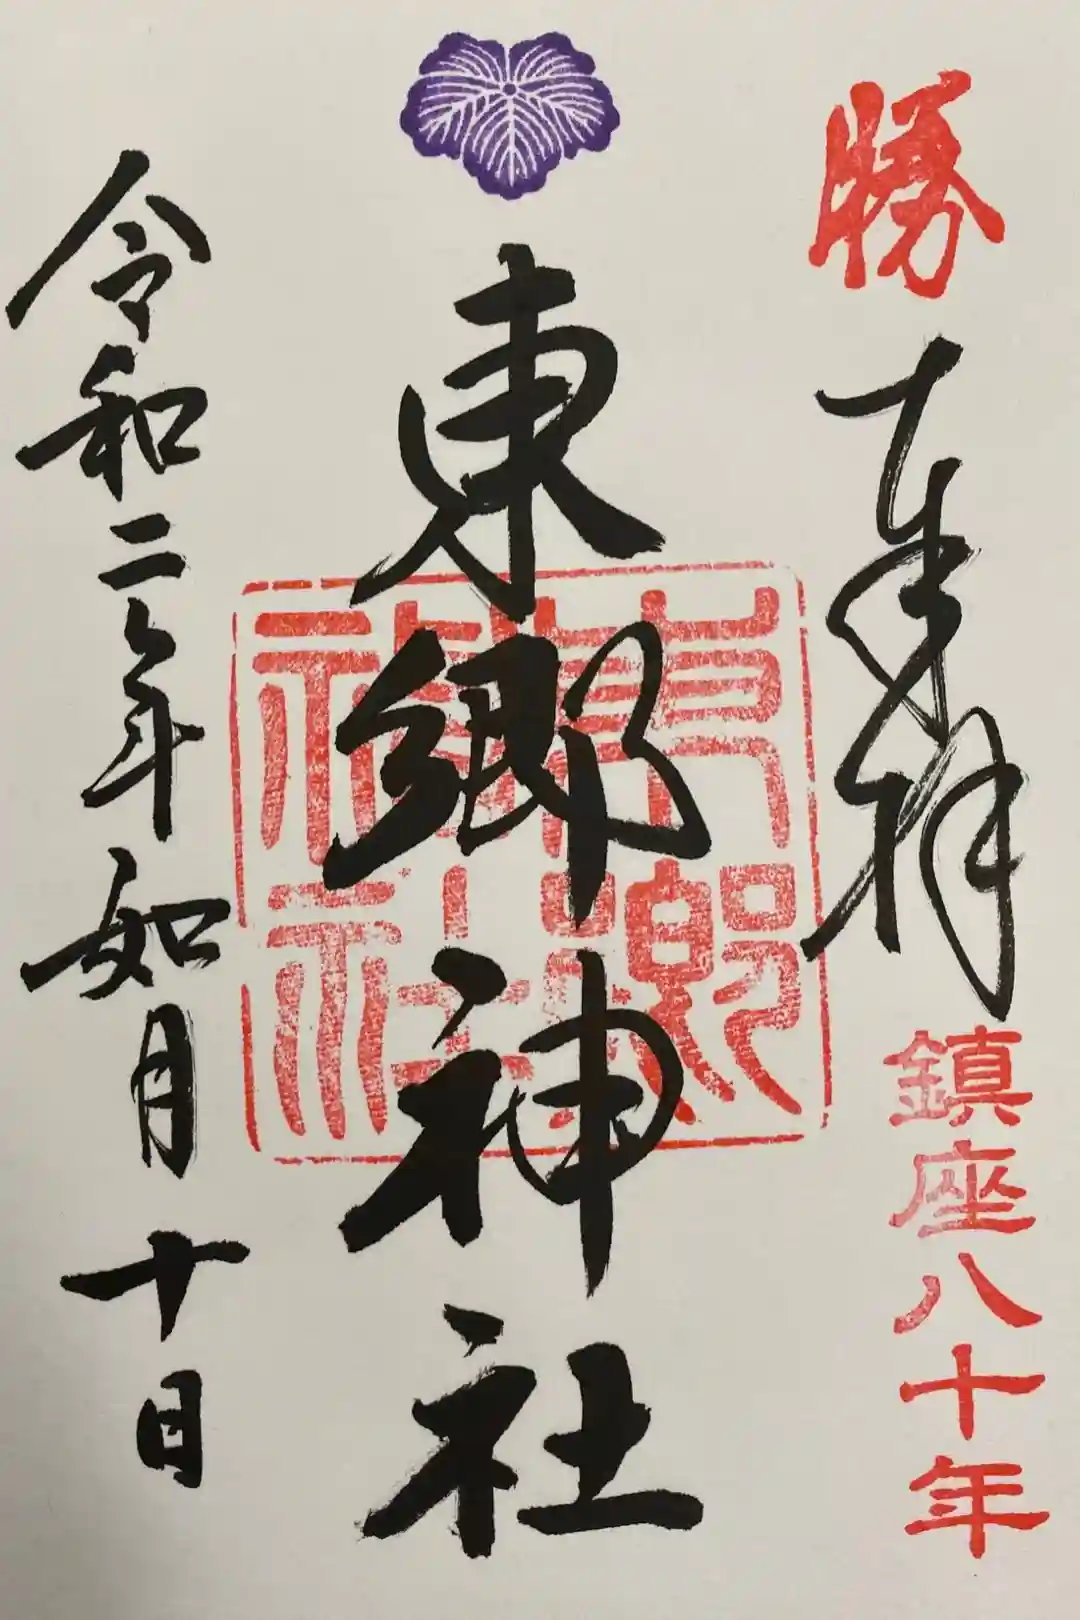 勝
奉拝
鎮座八十年
東郷神社
東郷神社
令和二年如月十日